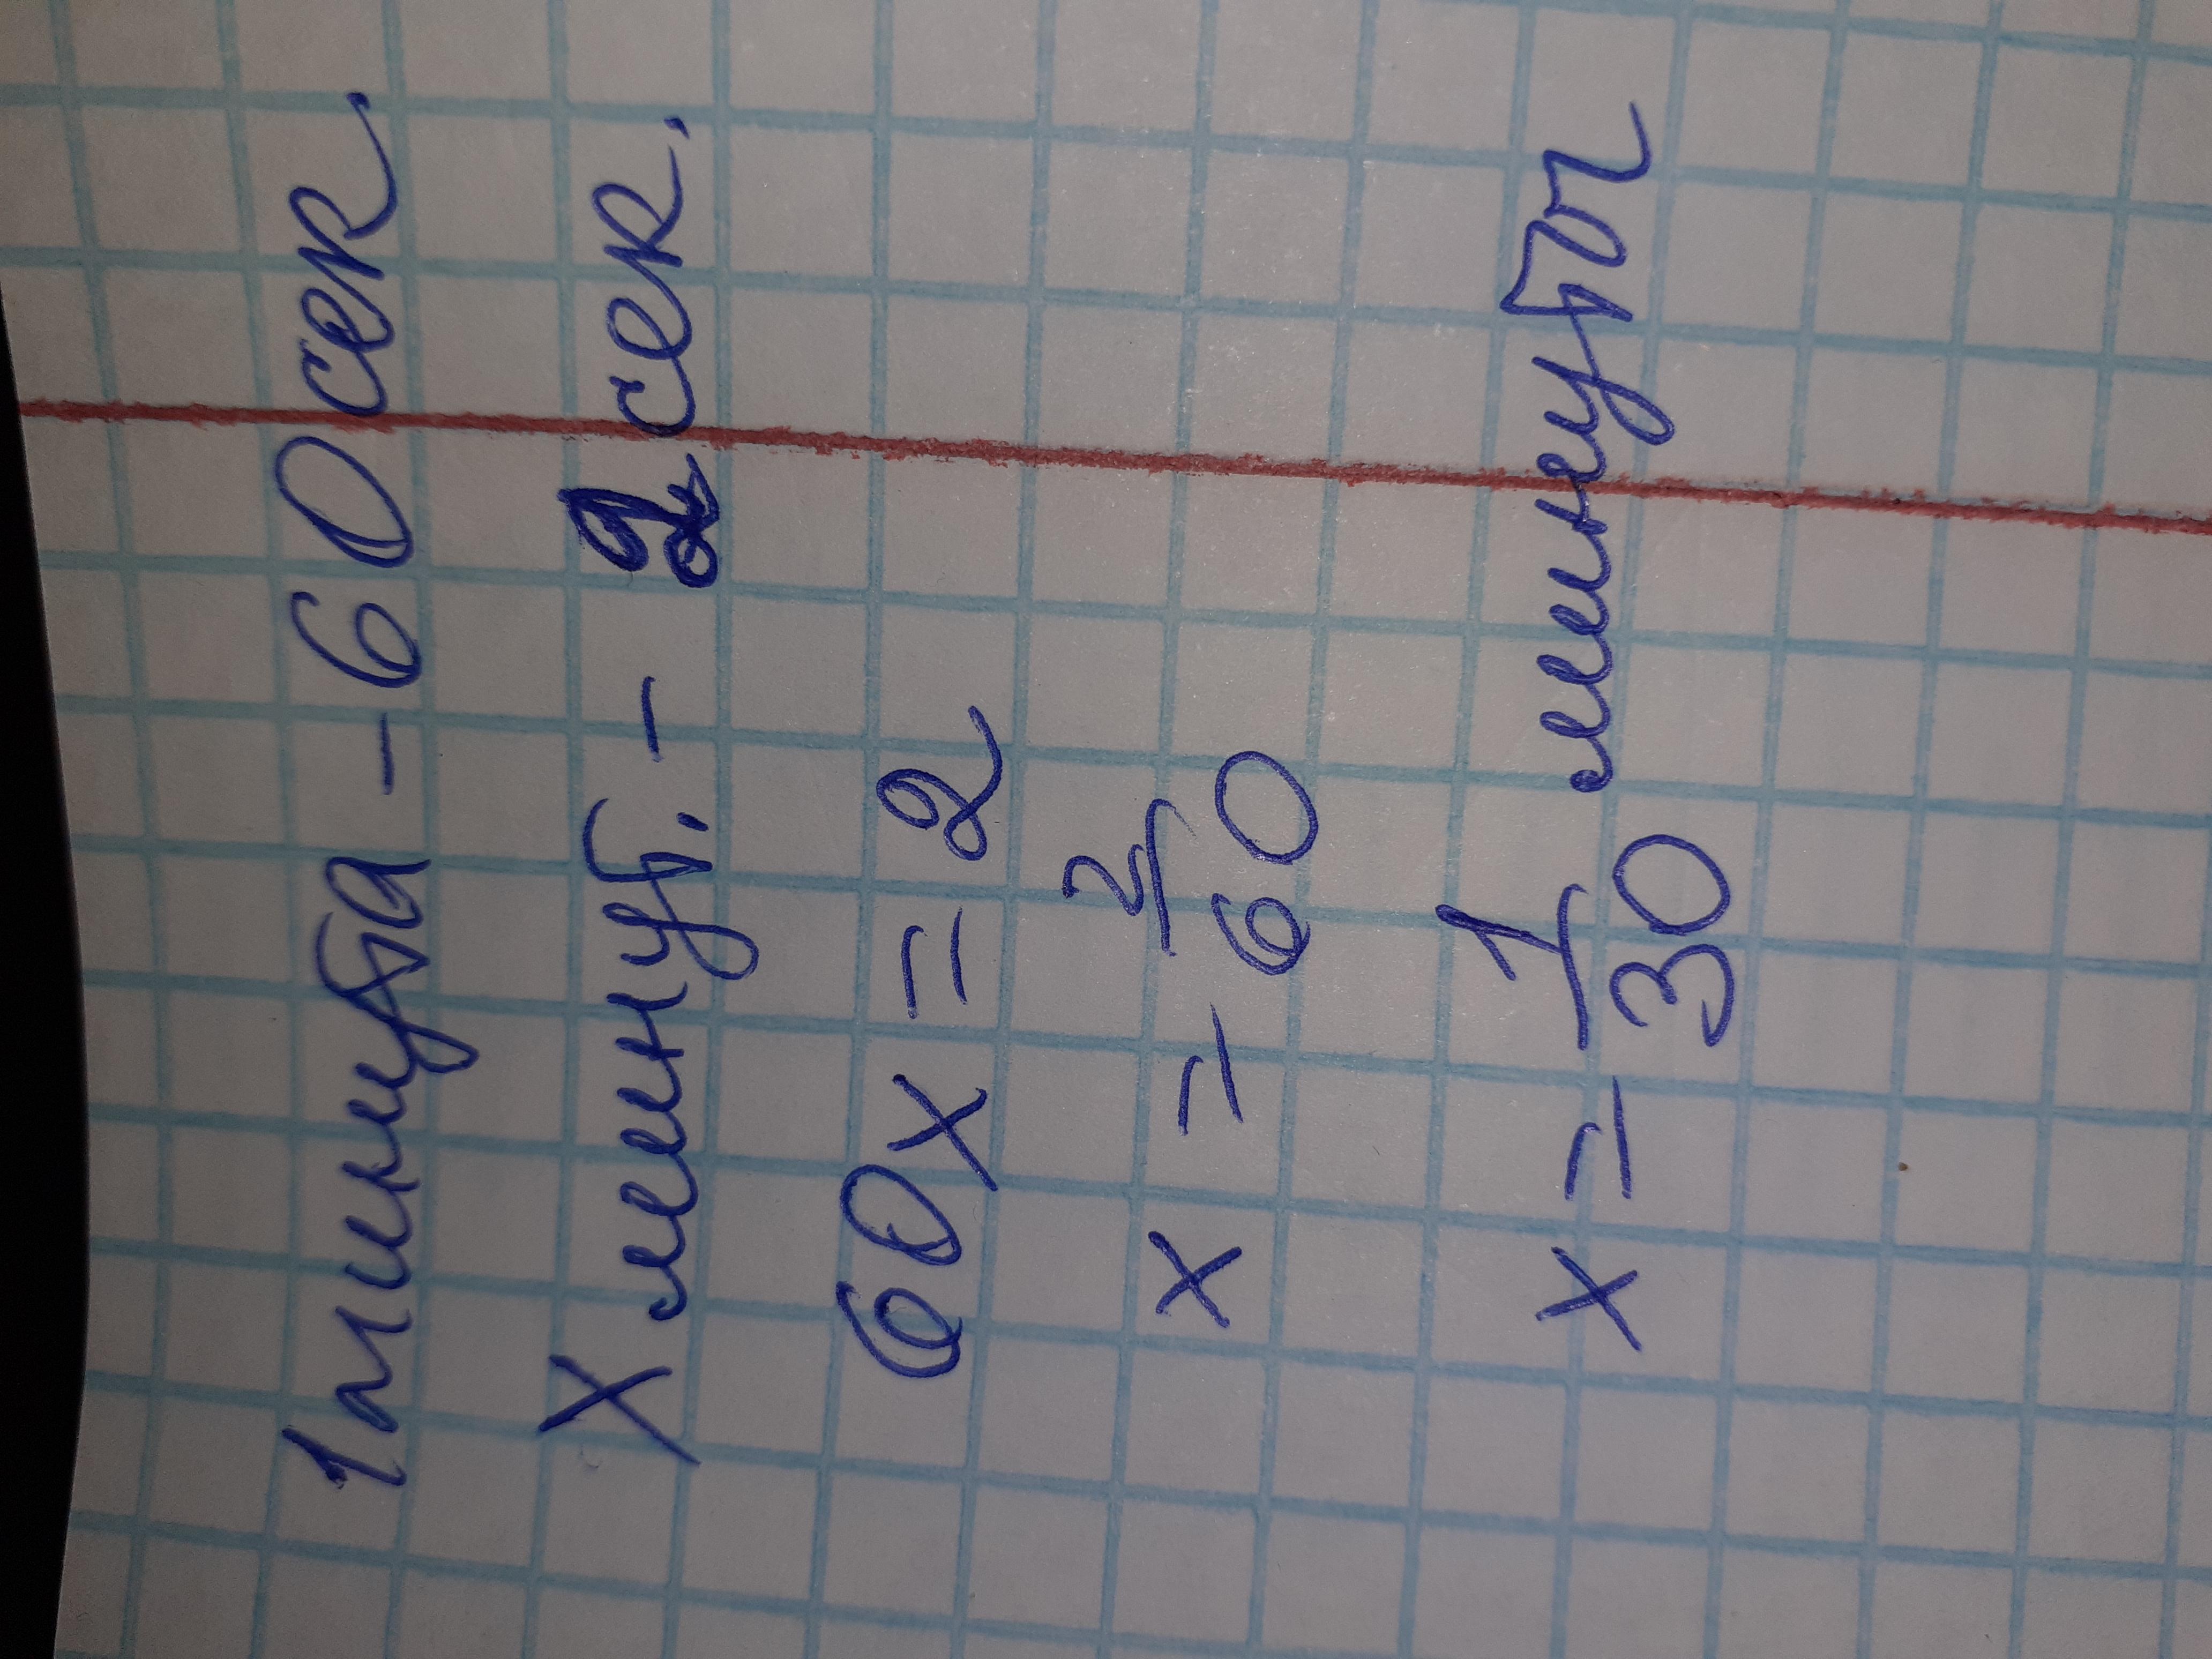 1 минута - 60 сек
X минут. - 2 сек.
60x = 2
x = 2/60
x = 1/30 минуты